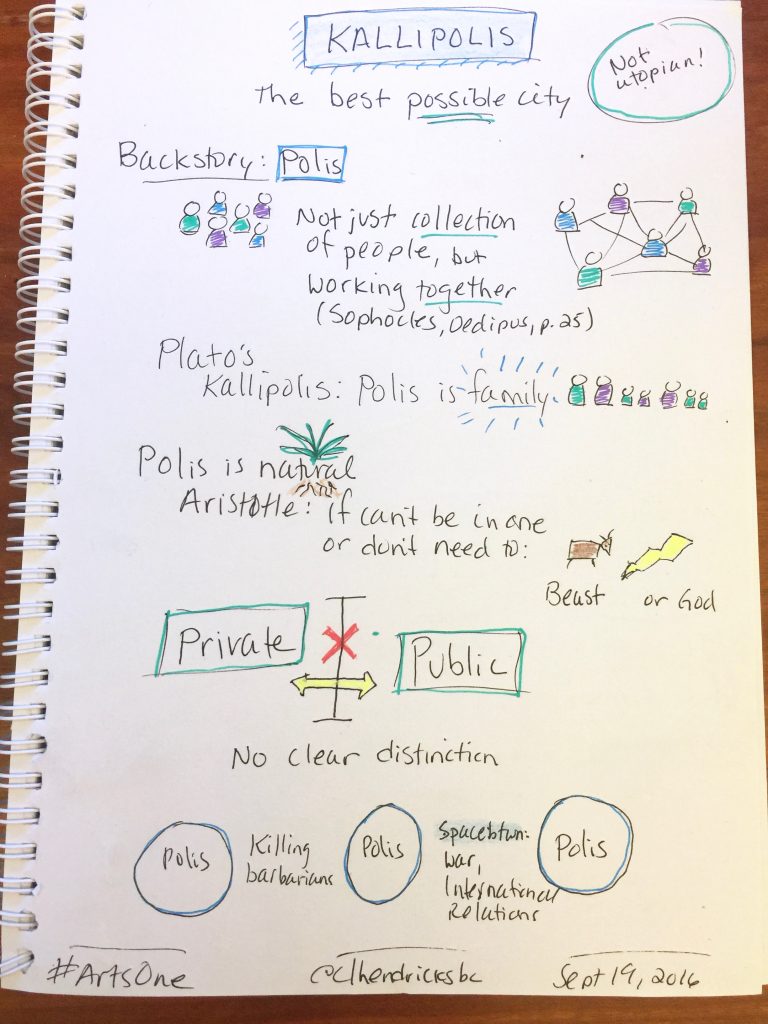 KALLIPOLIS
The best possible city
Not
utopian!
Backstory: Polis
Not just collection
of people, but
working together
(Sophocles, Oedipus, p. 25)
Plato's
Kallipolis: Polis is family
Polis is natural
Aristotle: if can't be in one
or don't need to:
Beast or God
Private
Public
No clear distinction
Polis
Killing
barbarians
Polis
Space btwn:
War,
International
Relations
Polis
#ArtsOne @clhendricksbc Sept 19, 2016